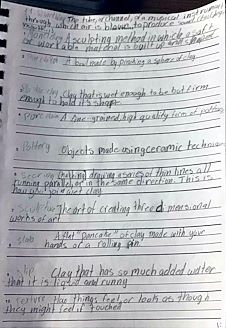 The tube, or channel, of a musical instrument
through which air is blown to produce sound
A sculpting method in which a soft
or workable material is built up and shaped
A bowl made by pinching a sphere of clay
Clay that is wet enough to be but firm
enough to hold its shape
A fine grained high quality form of pottery
Pottery Objects made using ceramic techniques
scoring drawing a series of thin lines all
running parallel or in the same direction. This is
clay
sculpture The art of creating three d imensional
works of art
slab A flat "pancake" of clay made with your
hands or a rolling pin.
slip Clay that has so much added water
that it is liquid and runny
texture How things feel, or look as though
they might feel if touched